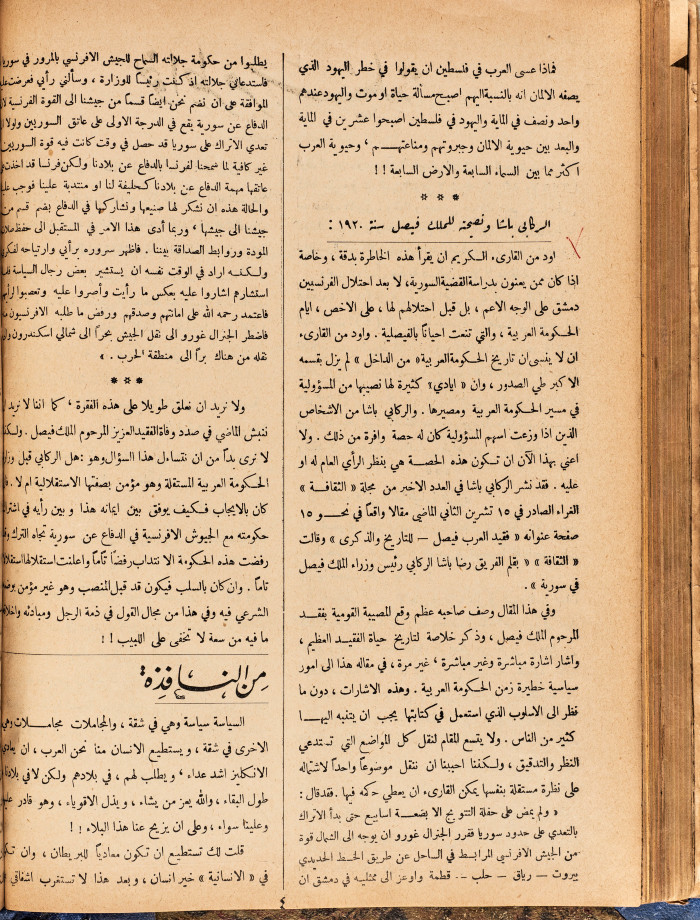 فماذا عسى العرب في فلسطين ان يقولوا في خطر اليهود الذي
يصفه الالمان انه بالنسبة اليهم اصبح مسألة حياة او موت واليهود عندهم
واحد ونصف في الماية واليهود في فلسطين اصبحوا عشرين في الماية
والبعد بين حيوية الالمان وجبروتهم ومناعتهم ، وحيوية العرب
اكثر مما بين السماء السابعة والارض السابعة !!
* * *
الركابي باشا ونصيحته للملك فيصل سنة ١٩٢٠ :
اود من القارىء الكريم ان يقرأ هذه الخاطرة بدقة ، وخاصة
اذا كان ممن يعنون بدراسة القضية السورية، لا بعد احتلال الفرنسيين
دمشق على الوجه الاعم ، بل قبل احتلالهم لها ، على الاخص ، ايام
الحكومة العربية ، والتي تنعت احياناً بالفيصلية . واود من القارىء
ان لا ينسى ان تاريخ الحكومة العربية « من الداخل » لم يزل بقسمه
الاكبر طي الصدور ، وان « ايادي » كثيرة لها نصيبها من المسؤولية
في مسير الحكومة العربية ومصيرها . والركابي باشا من الاشخاص
الذين اذا وزعت اسهم المسؤولية كان له حصة وافرة من ذلك . ولا
اعني بهذا الآن ان تكون هذه الحصة هي بنظر الرأي العام له او
عليه . فقد نشر الركابي باشا في العدد الاخير من مجلة « الثقافة »
الغراء الصادر في ١٥ تشرين الثاني الماضي مقالا واقعاً في نحو ١٥
صفحة عنوانه « فقيد العرب فيصل — للتاريخ والذكرى » وقالت
« الثقافة » « بقلم الفريق رضا باشا الركابي رئيس وزراء الملك فيصل
في سورية » .
وفي هذا المقال وصف صاحبه عظم وقع المصيبة القومية بفقد
المرحوم الملك فيصل ، وذكر خلاصة لتاريخ حياة الفقيد العظيم ،
واشار اشارة مباشرة وغير مباشرة ، غير مرة ، في مقاله هذا الى امور
سياسية خطيرة زمن الحكومة العربية . وهذه الاشارات ، دون ما
نظر الى الاسلوب الذي استعمل في كتابتها يجب ان يتنبه اليها
كثير من الناس . ولا يتسع المقام لنقل كل المواضع التي تستدعي
النظر والتدقيق ، ولكننا احببنا ان ننقل موضوعاً واحداً لاشتماله
على نظرة مستقلة بنفسها يمكن القارىء ان يعطي حكمه فيها . فقد قال :
« ولم يمض على حفلة التتويج الا بضعة اسابيع حتى بدأ الاتراك
بالتعدي على حدود سوريا فقرر الجنرال غورو ان يوجه الى الشمال قوة
من الجيش الافرنسي المرابط في الساحل عن طريق الخط الحديدي
بيروت — رياق — حلب — قطمة واوعز الى ممثليه في دمشق ان
يطلبوا من حكومة جلالته السماح للجيش الافرنسي بالمرور في سوريا
فاستدعاني جلالته اذ كنت رئيساً للوزارة ، وسألني رأيي فعرضت
الموافقة على ان نضم نحن ايضاً قسماً من جيشنا الى القوة الفرنسية
الدفاع عن سورية يقع في الدرجة الاولى على عاتق السوريين ولولا
تعدي الاتراك على سوريا قد حصل في وقت كانت فيه قوة السوريين
غير كافية لما سمحنا لفرنسا بالدفاع عن بلادنا ولكن فرنسا قد اخذت
عاتقها مهمة الدفاع عن بلادنا كحليفة لنا او منتدبة علينا فوجب
والحالة هذه ان نشكر لها صنيعها ونشاركها في الدفاع بضم قسم من
جيشنا الى جيشها ، وربما أدى هذا الامر في المستقبل الى حفظ
المودة وروابط الصداقة بيننا . فاظهر سروره برأيي وارتياحه
ولكنه اراد في الوقت نفسه ان يستشير بعض رجال السياسة
استشارهم اشاروا عليه بعكس ما رأيت وأصروا عليه وتعصبوا
فاعتمد رحمه الله على امانتهم وصدقهم ورفض ما طلبه الافرنسيون
فاضطر الجنرال غورو الى نقل الجيش بحراً الى شمالي اسكندرون
نقله من هناك براً الى منطقة الحرب . »
* * *
ولا نريد ان نعلق طويلا على هذه الفقرة ، كما اننا لا نريد
ننبش الماضي في صدد وفاة الفقيد العزيز المرحوم الملك فيصل .
لا نرى بداً من ان نتساءل هذا السؤال وهو : هل الركابي قبل
الحكومة العربية المستقلة وهو مؤمن بصفتها الاستقلالية ام لا .
كان بالايجاب فكيف يوفق بين ايمانه هذا وبين رأيه في
حكومته مع الجيوش الافرنسية في الدفاع عن سورية تجاه الترك
رفضت هذه الحكومة الانتداب رفضاً تاماً واعلنت استقلالها
تاماً . وان كان بالسلب فيكون قد قبل المنصب وهو غير مؤمن
الشرعي فيه وفي هذا من مجال القول في ذمة الرجل ومبادئه
ما فيه من سعة لا تخفى على اللبيب !!
من النافذة
السياسة سياسة وهي في شقة ، والمجاملات مجاملات وهي
الاخرى في شقة ، ويستطيع الانسان منا نحن العرب ، ان
الانكليز اشد عداء ، ويطلب لهم ، في بلادهم ولكن لا في
طول البقاء ، والله يعز من يشاء ، ويذل الاقوياء ، وهو قادر
وعلينا سواء ، وعلى ان يزيح عنا هذا البلاء !!
قلت لك تستطيع ان تكون معادياً للبريطان ، وان
في « الانسانية » خير انسان ، وبعد هذا لا تستغرب
٤